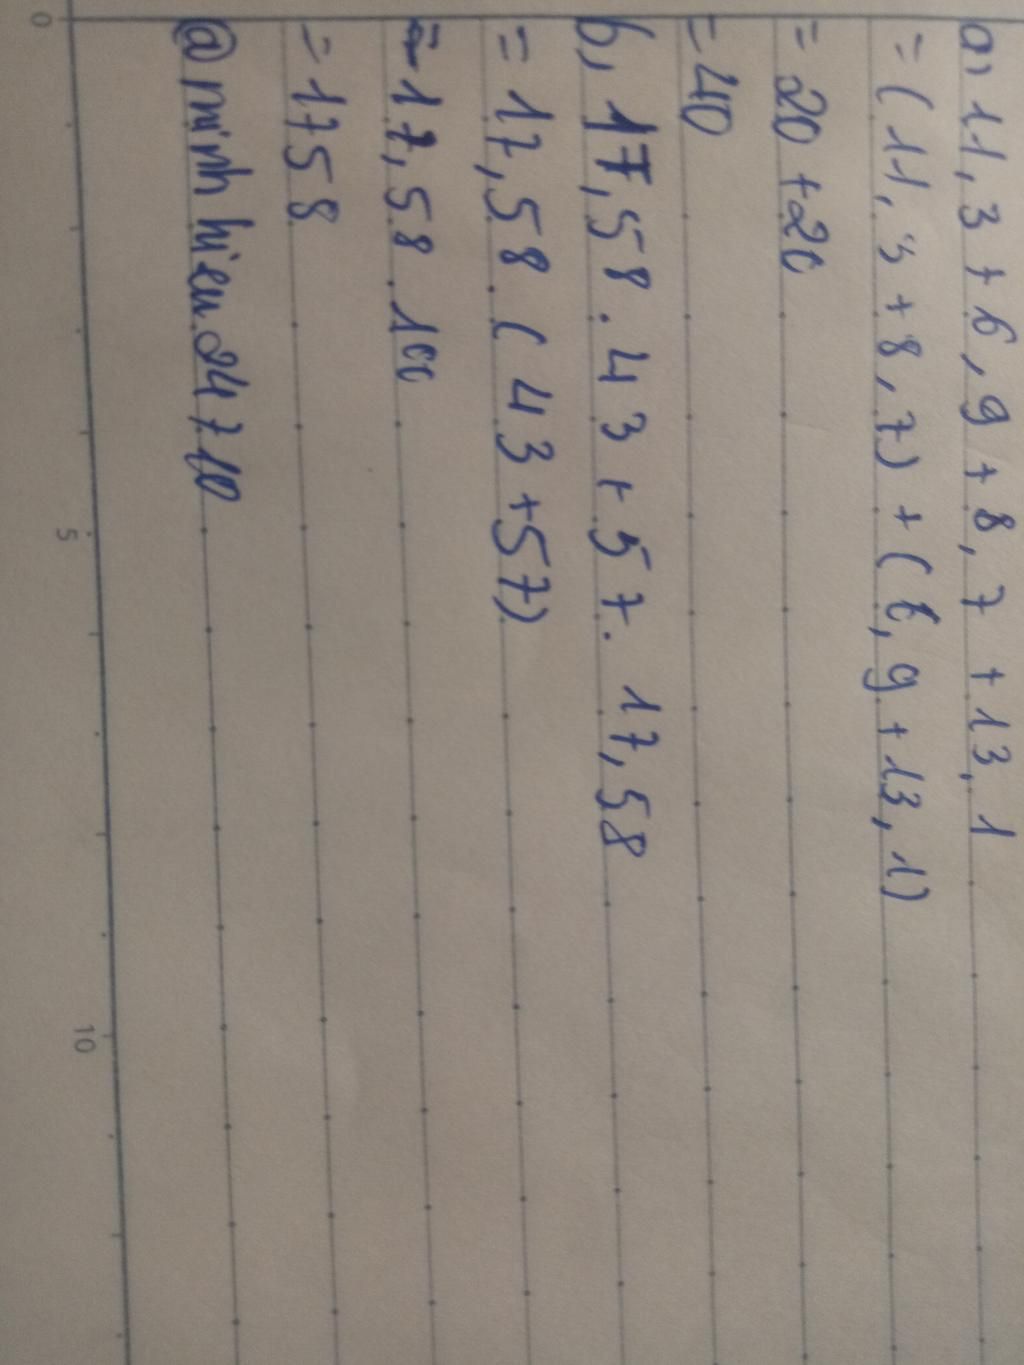 a, 11,3 + 6,9 + 8,7 + 13,1
= (11,3 + 8,7) + (6,9 + 13,1)
= 20 + 20
= 40
b, 17,58 . 43 + 57 . 17,58
= 17,58 . (43 + 57)
= 17,58 . 100
= 1758
@minhhieu24710
0
5
10